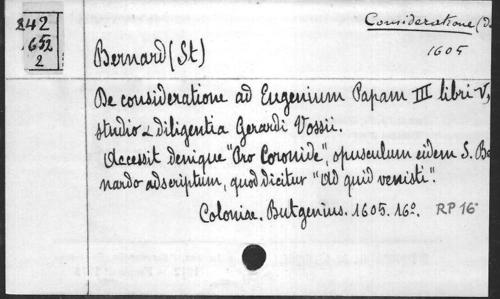 Consideratione (De
242
1605
652
2
Bernard (St)
De consideratione ad Eugenium Papam III libri V,
studio & diligentia Gerardi Vossii.
Accessit denique "Pro Coronide", opusculum eidem S. Ber
nardo adscriptum, quod dicitur "Ad quid venisti".
Coloniae. Butgenius. 1605. 16º. RP 16º